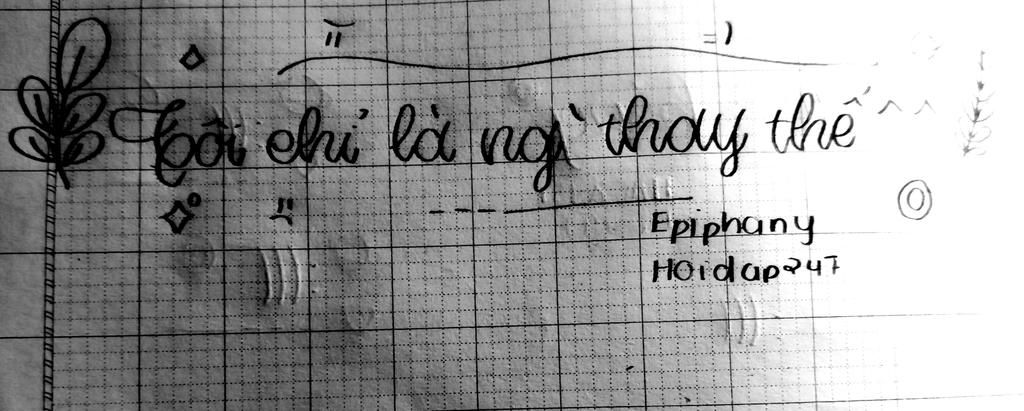 Tôi chỉ là ngì thay thế
Epiphany
Hoidap247